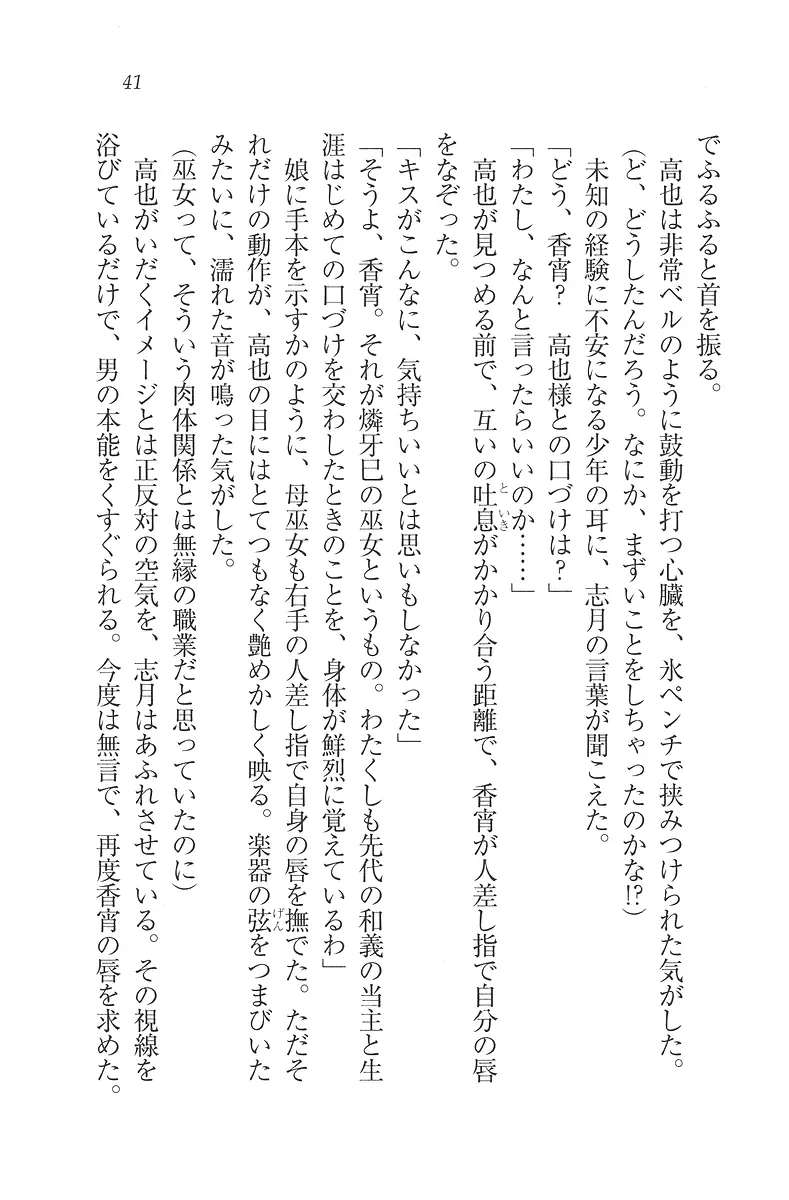 41
でふるふると首を振る。
　高也は非常ベルのように鼓動を打つ心臓を、氷ペンチで挟みつけられた気がした。
（ど、どうしたんだろう。なにか、まずいことをしちゃったのかな!?）
　未知の経験に不安になる少年の耳に、志月の言葉が聞こえた。
「どう、香宵？　高也様との口づけは？」
「わたし、なんと言ったらいいのか……」
　高也が見つめる前で、互いの吐息がかかり合う距離で、香宵が人差し指で自分の唇
をなぞった。
「キスがこんなに、気持ちいいとは思いもしなかった」
「そうよ、香宵。それが燐牙巳の巫女というもの。わたくしも先代の和義の当主と生
涯はじめての口づけを交わしたときのことを、身体が鮮烈に覚えているわ」
　娘に手本を示すかのように、母巫女も右手の人差し指で自身の唇を撫でた。ただそ
れだけの動作が、高也の目にはとてつもなく艶めかしく映る。楽器の弦をつまびいた
みたいに、濡れた音が鳴った気がした。
（巫女って、そういう肉体関係とは無縁の職業だと思っていたのに）
　高也がいだくイメージとは正反対の空気を、志月はあふれさせている。その視線を
浴びているだけで、男の本能をくすぐられる。今度は無言で、再度香宵の唇を求めた。